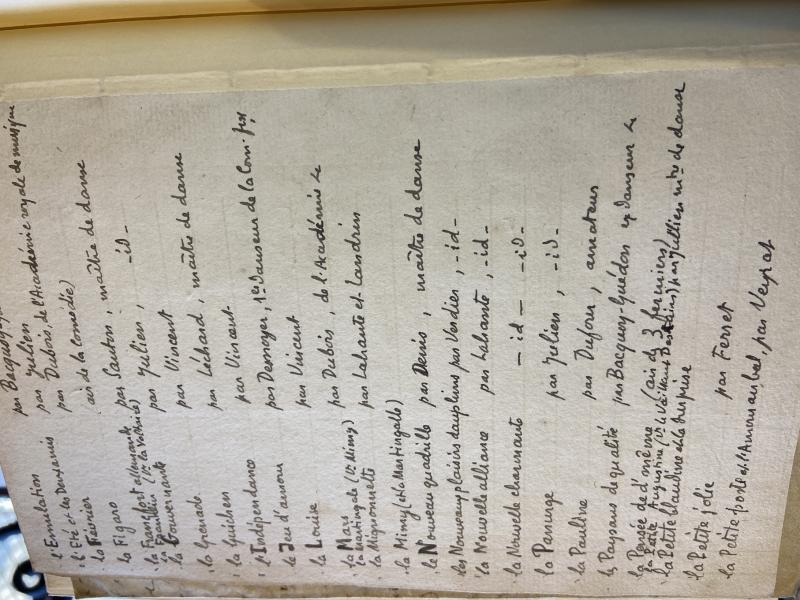 par Bacquoy
l'Emulation par Julien
l'Eté et les Deux amis par Dubois, de l'Académie royale de musique
la Fermier par
air de la Comédie)
la Figaro par Sauton, maître de danse
la Franklin par Julien, -id-
la Gouvernante par Vincent
la Grenade par Léchard, maître de danse
la Guichen par Vincent
l'Indépendance par Desnoyer, 1er danseur de la Com.
le Jeu d'amour par Vincent
la Louise par Dubois, de l'Académie
la Mars par Lahante et Landrin
la Martingale (Ve Mimy)
la Mignonnette
la Mimy (et la Martingale)
le Nouveau quadrille par Denis, maître de danse
les Nouveaux plaisirs dauphins par Verdier, -id-
la Nouvelle alliance par Lahante, -id-
la Nouvelle charmante -id- -id-
la Panurge par Julien, -id-
la Pauline par Dufour, amateur
le Paysans de qualité par Bacquoy-Guédon danseur
la Pensée de d'même (air des 3 fermiers)
la Petite Augustine par Jullien mtre de danse
la Petite blaudine et la surprise
la Petite jolie par Ferret
la Petite poste et l'Amour au bal, par Veyrat